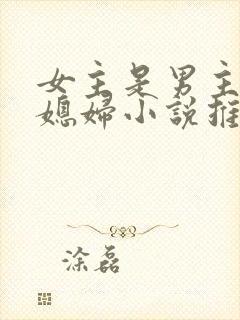 女主是男主
媳婦小說推
涂磊